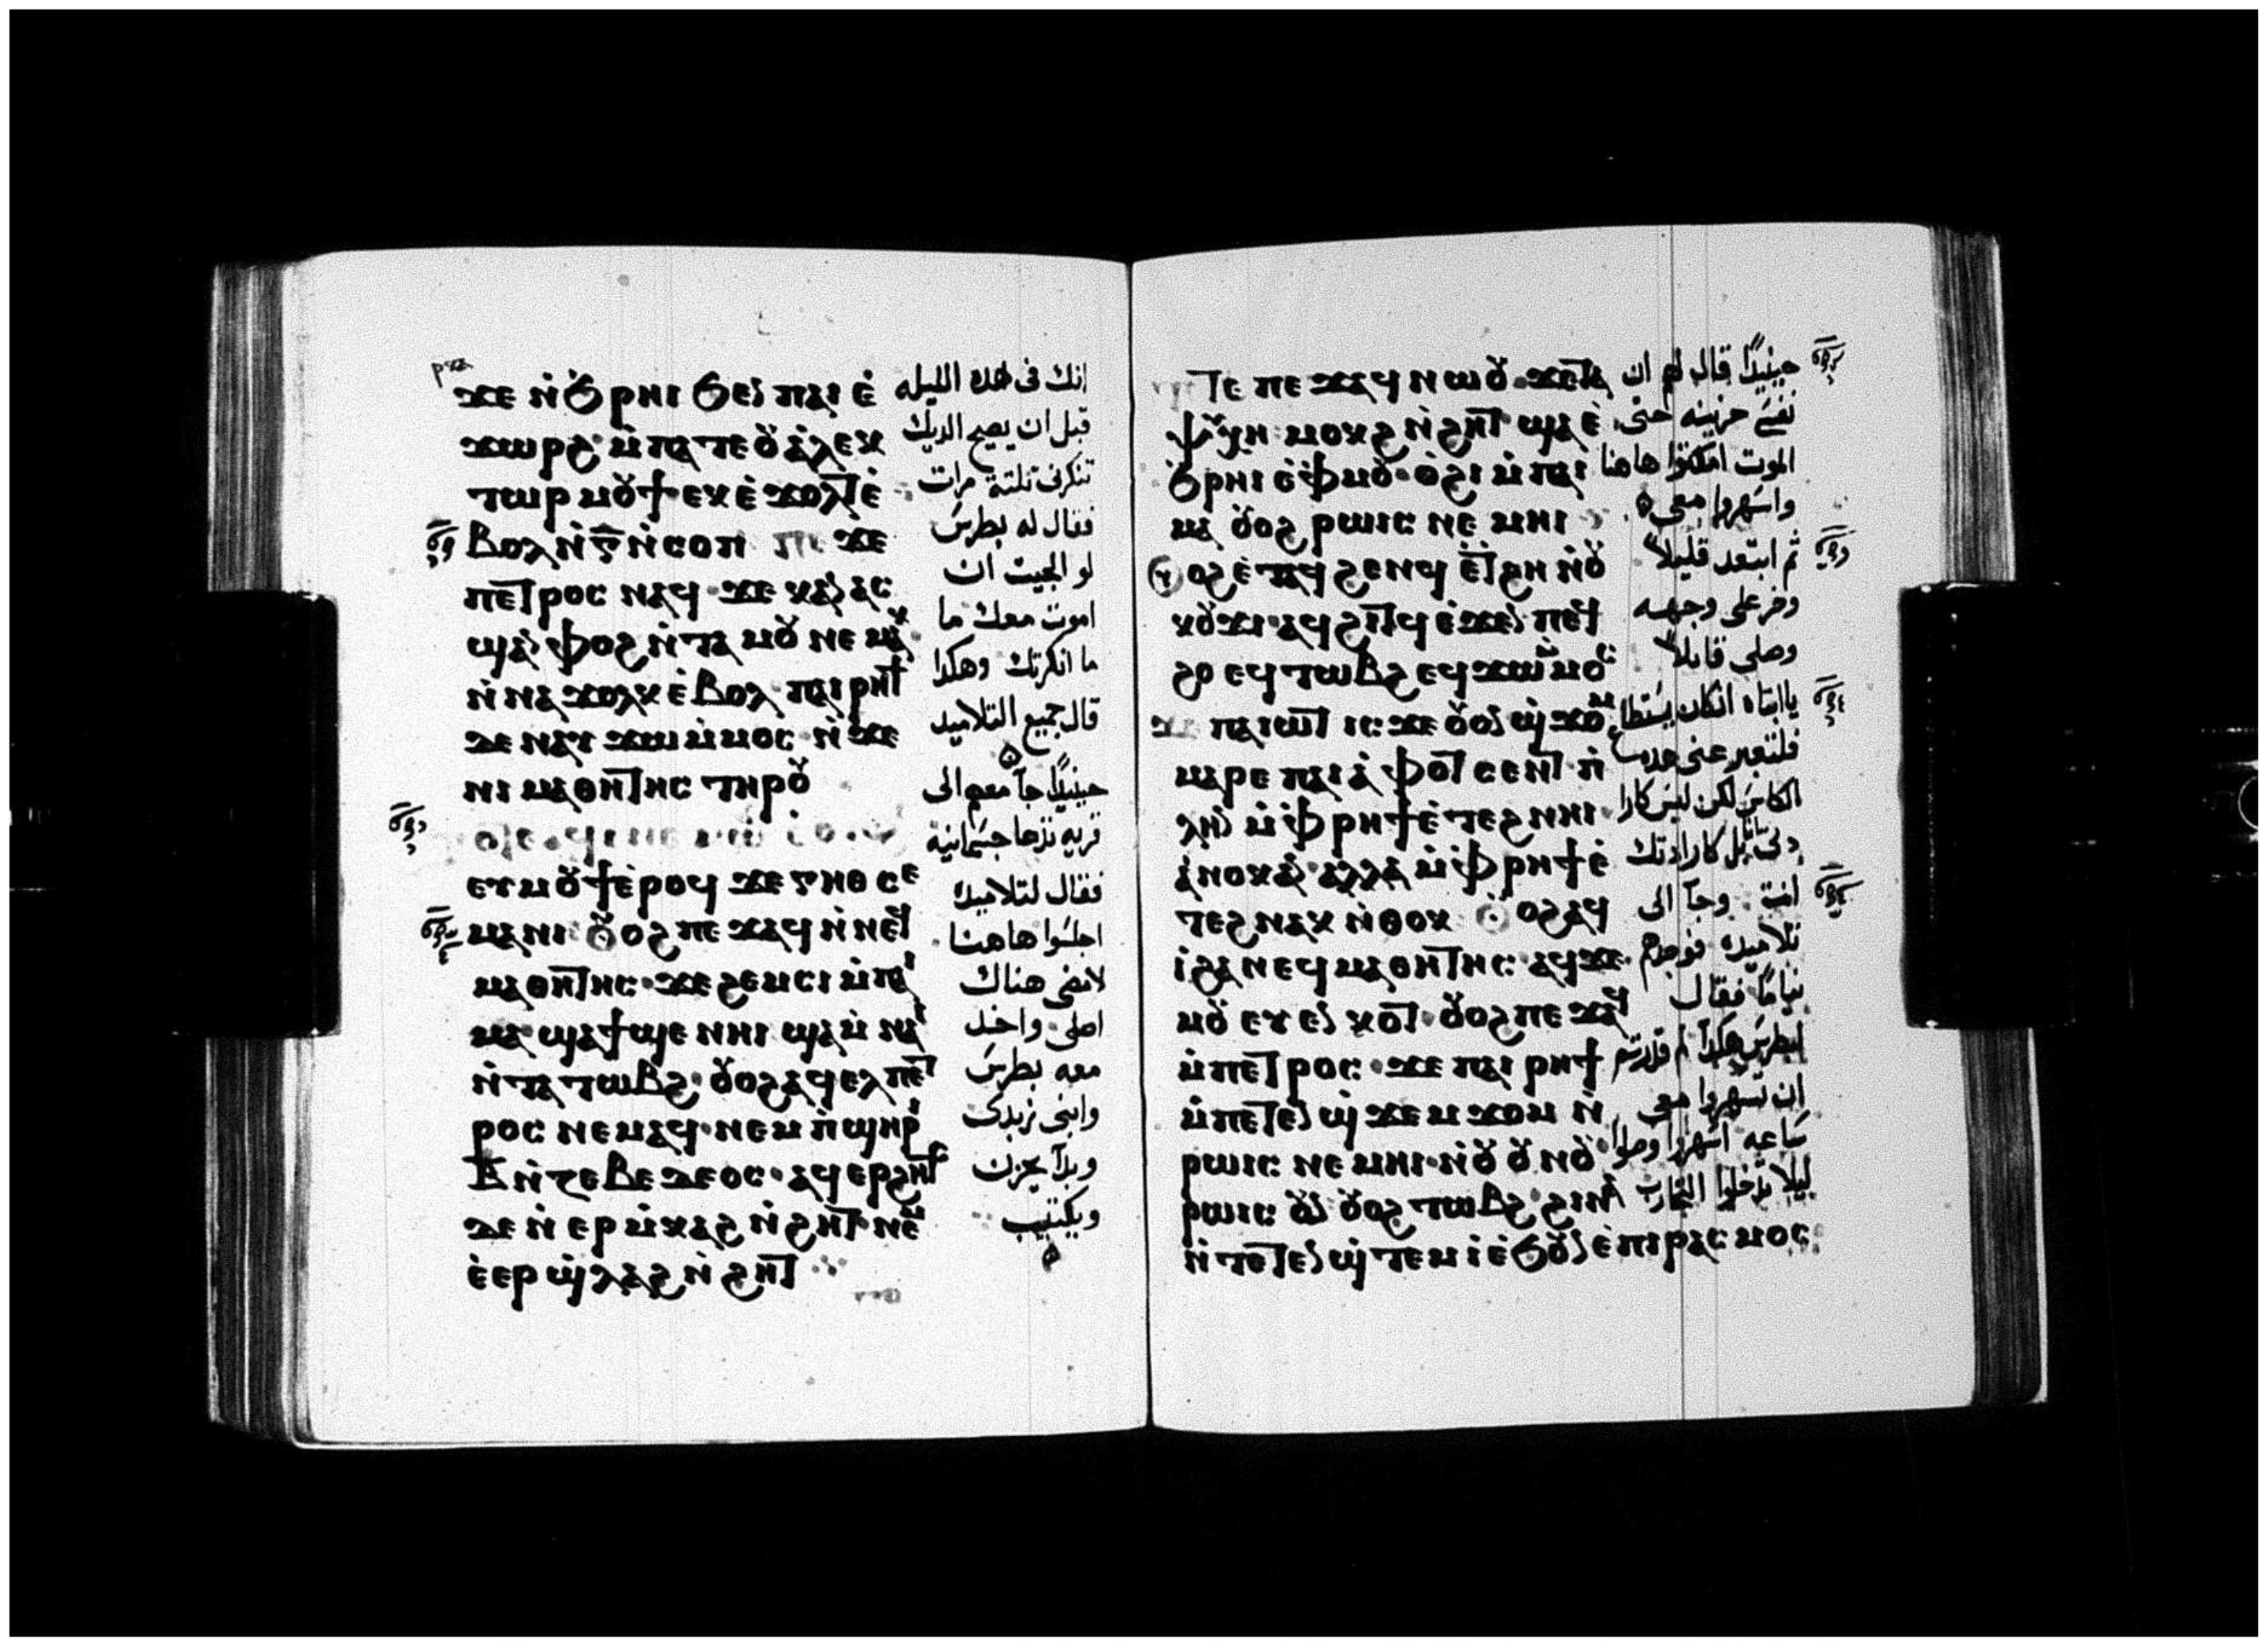 ϫⲉ ⲛ̇ϧ̇ⲣⲏⲓ ϧⲉⲛ ⲡⲁⲓ ⲉ̇
ϫⲱⲣϩ ⲙ̇ⲡⲁⲧⲉ ⲟⲩⲁ̇ⲗⲉⲕ
ⲧⲱⲣ ⲙⲟⲩϯ ⲉⲕⲉ̇ϫⲟⲗⲧ ⲉ̇
ⲃⲟⲗ ⲛ̇ⲅ̅ ⲛ̇ⲥⲟⲡ ϫⲉ
ⲡⲉⲧⲣⲟⲥ ⲛⲁϥ ϫⲉ ⲕⲁⲛ ⲁⲥ
ϣⲁⲛ ⲫⲟϩ ⲛ̇ⲧⲁ ⲙⲟⲩ ⲛⲉⲙⲁⲕ
ⲛ̇ⲛⲁ ϫⲟⲗⲕ ⲉ̇ⲃⲟⲗ ⲡⲁⲓⲣⲏϯ
ⲇⲉ ⲛⲁⲩ ϫⲱ ⲙ̇ⲙⲟⲥ ⲛ̇ϫⲉ
ⲛⲓ ⲙⲁⲑⲏⲧⲏⲥ ⲧⲏⲣⲟⲩ
ⲉⲩⲙⲟⲩϯ ⲉ̇ⲣⲟϥ ϫⲉ ⲅⲏⲑⲥⲉ
ⲙⲁⲛⲓ ⲟⲩⲟϩ ⲡⲉϫⲁϥ ⲛ̇ⲛⲉϥ
ⲙⲁⲑⲏⲧⲏⲥ ϫⲉ ϩⲉⲙⲥⲓ ⲙ̇ⲡⲁⲓ
ⲙⲁ ϣⲁϯϣⲉ ⲛⲏⲓ ϣⲁ ⲙ̇ⲛⲁⲓ
ⲛ̇ⲧⲁ ⲧⲱⲃϩ ⲟⲩⲟϩ ⲁϥⲉⲗ ⲡⲉⲧ
ⲣⲟⲥ ⲛⲉⲙⲁϥ ⲛⲉⲙ ⲡ̇ϣⲏⲣⲓ
ⲃ̅ ⲛ̇ⲍⲉⲃⲉⲇⲉⲟⲥ ⲁϥⲉⲣϩⲏⲧⲥ
ⲇⲉ ⲛ̇ⲉⲣ ⲙ̇ⲕⲁϩ ⲛ̇ϩⲏⲧ ⲛⲉⲙ
ⲉ̇ⲉⲣ ϣ̇ⲗⲁϩ ⲛ̇ϩⲏⲧ
انك فى هده الليله
قبل ان يصيح الديك
تنكرنى تلتة مرات
فقال له بطرس
لو الجيت ان
اموت معك ما
ما انكرتك وهكدا
قال جميع التلاميد
حينيدًا جآ معهم الى
قريه تدعا جسمانيه
فقال لتلاميده
اجلسوا هاهنا
لامضى هناك
اصلى واخد
معه بطرس
وابنى زبدى
وبدآ يحزن
ويكتيب
ⲧⲉ ⲡⲉϫⲁϥ ⲛⲱⲟⲩ ϫⲉ ⲧⲁ
ⲯⲩⲭⲏ ⲙⲟⲕϩ ⲛ̇ϩⲏⲧ ϣⲁ ⲉ̇
ϧ̇ⲣⲏⲓ ⲉ̇ⲫ̇ⲙⲟⲩ ⲟ̇ϩⲓ ⲙ̇ⲡⲁⲓ
ⲙⲁ ⲟⲩⲟϩ ⲣⲱⲓⲥ ⲛⲉⲙⲏⲓ
ⲟⲩⲟϩ ⲉ̇ⲧⲁϥ ϩⲉⲛϥ ⲉ̇ⲧϩⲏ ⲛ̇ⲟⲩ
ⲕⲟⲩϫⲓ ⲁϥϩⲓⲧϥ ⲉ̇ϫⲉⲛ ⲡⲉϥ
ϩⲟ ⲉϥⲧⲱⲃϩ ⲉϥϫⲱ ⲙ̇ⲙⲟⲥ
ϫⲉ ⲡⲁⲓⲱⲧ ⲓⲥϫⲉ ⲟⲩⲟⲛ ϣ̇ϫⲟⲙ
ⲙⲁⲣⲉ ⲡⲁⲓ ⲁ̇ⲫⲟⲧ ⲥⲉⲛⲧ ⲡ̇
ⲗⲏⲛ ⲙ̇ⲫ̇ⲣⲏϯ ⲉ̇ⲧⲉϩⲛⲏⲓ
ⲁ̇ⲛⲟⲕ ⲁⲛ ⲁⲗⲗⲁ ⲙ̇ⲫ̇ⲣⲏϯ ⲉ̇
ⲧⲉϩⲛⲁⲕ ⲛ̇ⲑⲟⲕ ⲟⲩⲟϩ ⲁϥ
ⲓ̇ ϩⲁ ⲛⲉϥ ⲙⲁⲑⲏⲧⲏⲥ ⲁϥϫⲉ
ⲙⲟⲩ ⲉⲩⲉⲛⲕⲟⲧ ⲟⲩⲟϩ ⲡⲉϫⲁϥ
ⲙ̇ⲡⲉⲧⲣⲟⲥ ϫⲉ ⲡⲁⲓⲣⲏϯ
ⲙ̇ⲡⲉⲧⲉⲛ ϣ̇ϫⲉⲙϫⲟⲙ ⲛ̇
ⲣⲱⲓⲥ ⲛⲉⲙⲏⲓ ⲛ̇ⲟⲩ ⲟⲩⲛⲟⲩ
ⲣⲱⲓⲥ ⲟⲩⲛ ⲟⲩⲟϩ ⲧⲱⲃϩ ϩⲓⲛⲁ
ⲛ̇ⲧⲉⲧⲉⲛ ϣ̇ⲧⲉⲙⲓ̇ ⲉ̇ϧⲟⲩⲛ ⲉ̇ⲡⲓⲣⲁⲥⲙⲟⲥ
حينيدًا قال لهم ان
نفسى حزينه حتى
الموت امكثوا هاهنا
واسهروا معى
ثم ابتعد قليلاً
وخر على وجهه
وصلى قايلاً
ياابتاه انكان يستطاع
فلتعبر عنى هده
الكاس لكن ليس كارا
دتى بل كارادتك
انت وجآ الى
تلاميده فوجدهم
نيامًا فقال
لبطرس هكدا لم قدرتم
ان تسهروا معى
ساعه اسهروا وصلوا
ليلا تدخلوا التجارب